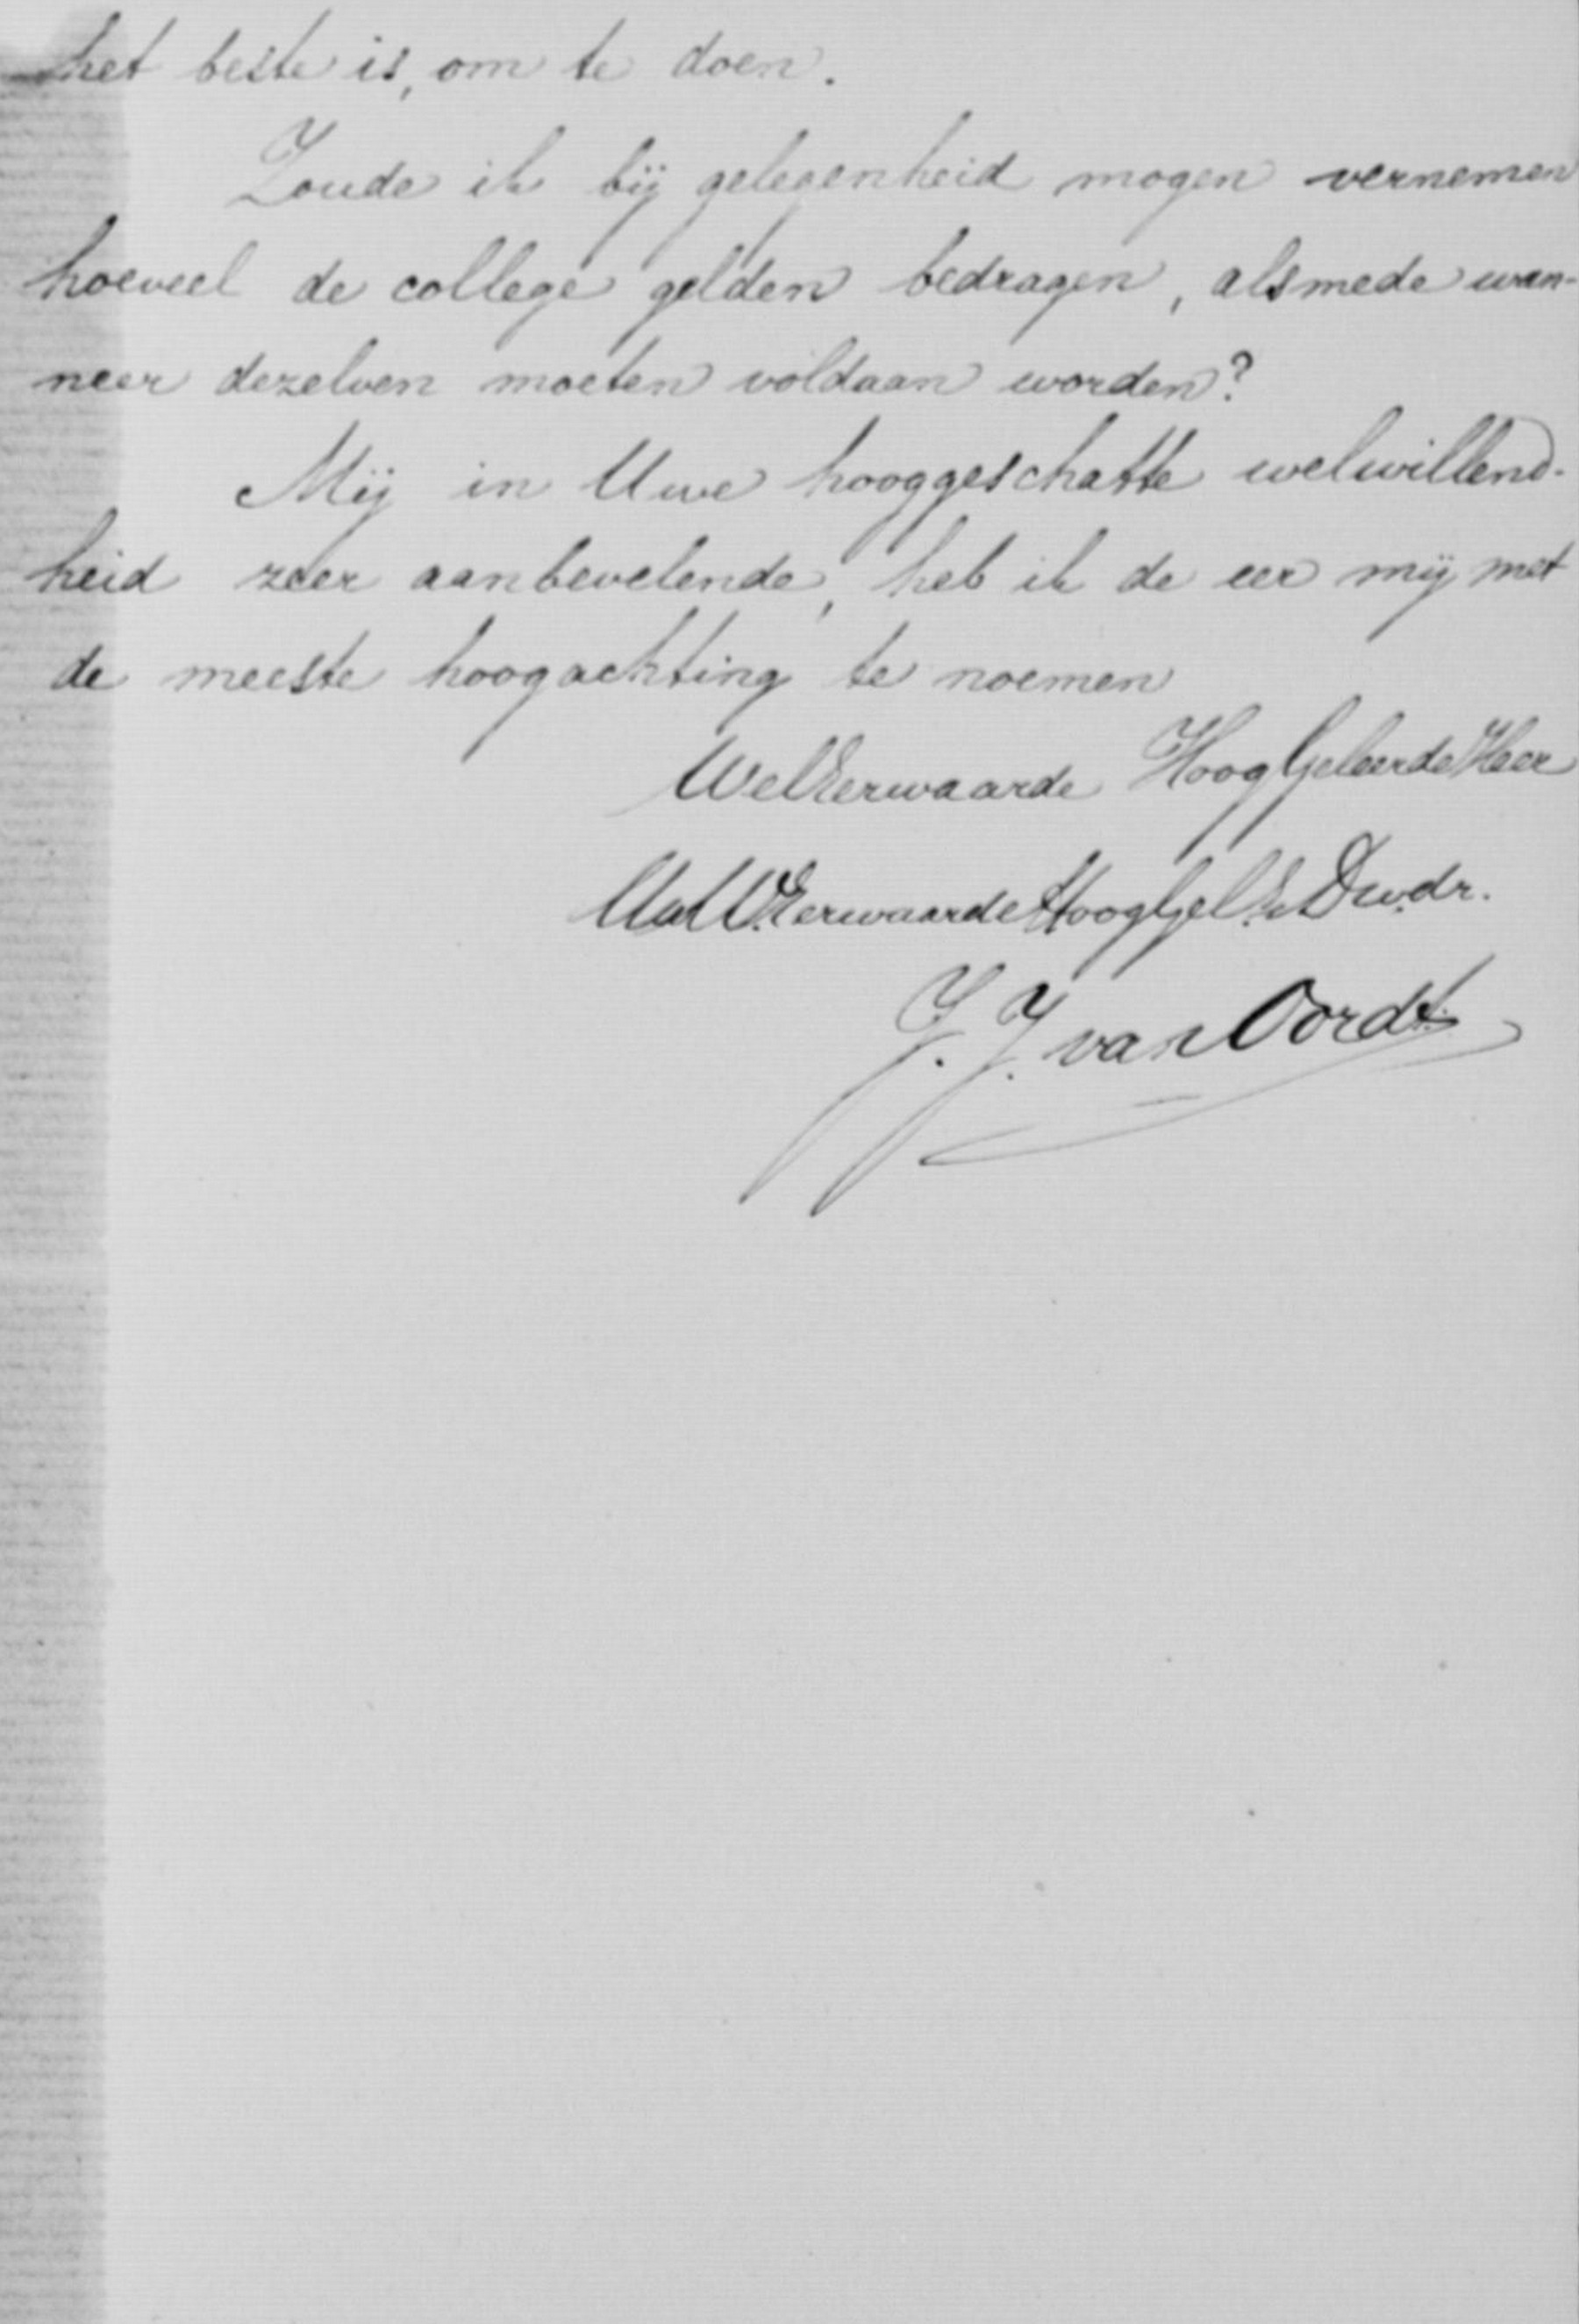 het beste is, om te doen.
Zoude ik bij gelegenheid mogen vernemen
hoeveel de college gelden bedragen, alsmede wan-
neer dezelven moeten voldaan worden?
Mij in Uwe hooggeschatte welwillend-
heid zeer aanbevelende, heb ik de eer mij met
de meeste hoogachting te noemen
WelEerwaarde HoogGeleerde Heer
UwW.Eerwaarde HoogGel. Dw.dr.
J. J. van Oordt